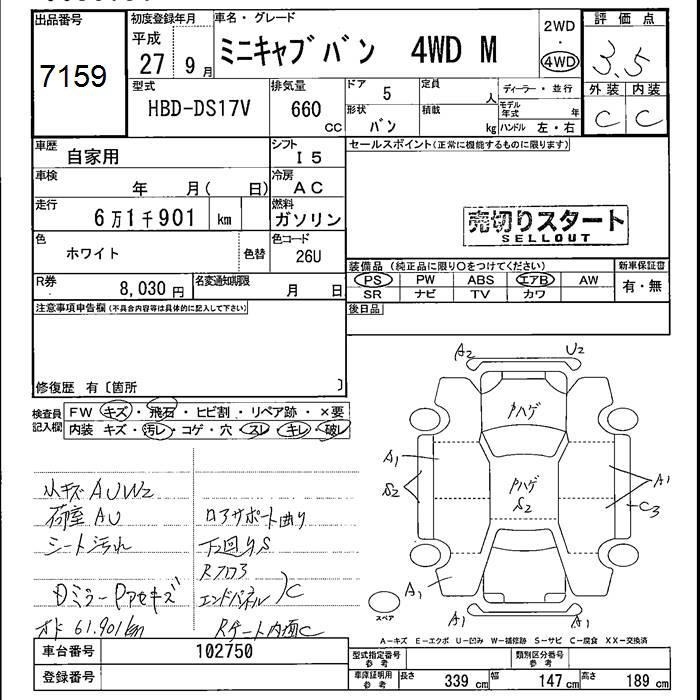 出品番号
7159
初度登録年月
平成
27 9月
車名・グレード
ミニキャブバン 4WD M
2WD
・
4WD
評価点
3.5
外装 内装
C C
型式
HBD-DS17V
排気量
660
cc
ドア 5
形状
バン
定員
人
積載
kg
ディーラー・並行
モデル年式 年
ハンドル 左・右
車歴
自家用
シフト
I5
車検
年 月( 日)
冷房
AC
走行
6万1千901 km
燃料
ガソリン
色
ホワイト
色替
色コード
26U
R券
8,030円
名変通知期限
月 日
セールスポイント(正常に機能するものに限ります)
売切りスタート
SELLOUT
装備品 (純正品に限り○をつけてください)
PS PW ABS エアB AW
SR ナビ TV カワ
新車保証書
有・無
後日品
注意事項申告欄(不具合内容等は具体的に記入して下さい)
修復歴 有〔箇所 〕
検査員
記入欄
FW キズ・飛石・ヒビ割・リペア跡・×要
内装 キズ・汚レ・コゲ・穴・スレ・キレ・破レ
小キズAUW2
荷室AU
シート汚れ
Dミラー Pアセキズ
オド 61.901km
ロアサポート曲り
下回りS
Rフロア
エンドパネル )C
Rゲート内面C
A2 U2
Pハゲ
A1
S2
Pハゲ
S2
A1
C3
A1
A1 A1
スペア
A-キズ E-エクボ U-凹み W-補修跡 S-サビ C-腐食 XX-交換済
車台番号 102750
登録番号
型式指定番号
参考
類別区分番号
参考
車庫証明用
参考
長さ 339 cm 幅 147 cm 高さ 189 cm